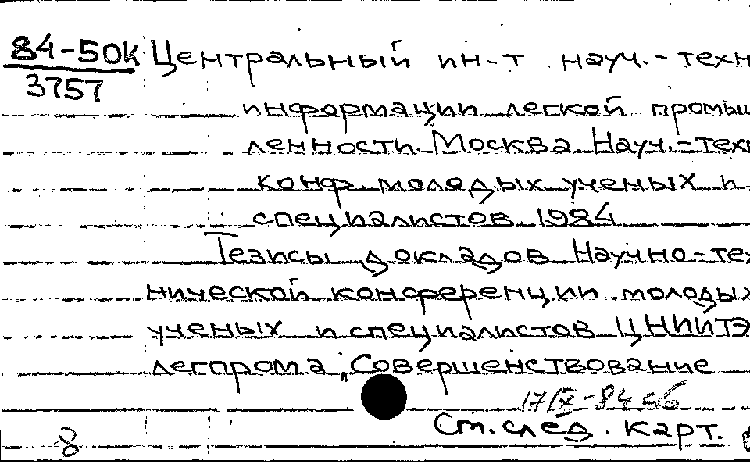 84-50К Центральный ин-т науч.-техн
3757
информации легкой промыш
ленности. Москва. Науч.-техн
конф. молодых ученых и
специалистов. 1984
Тезисы докладов Научно-тех
нической конференции молодых
ученых и специалистов ЦНИИТЭ
легпрома „Совершенствование
17/IX-84
См. след. карт.
8